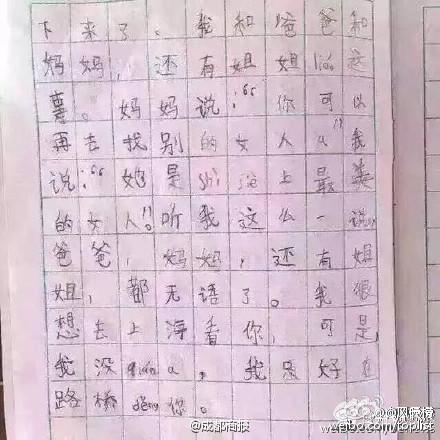 下来了。我和爸爸和
妈妈，还有姐姐liáo这
事。妈妈说：“你可以
再去找别的女人a”我
说：“她是shì jiè上最美
的女人”。听我这么一说，
爸爸，妈妈，还有姐
姐，都无语了。我很
想去上海看你，可是
我没qián a，我只好在
路桥děng你。
@成都商报
@风靡榜
weibo.com/toplist